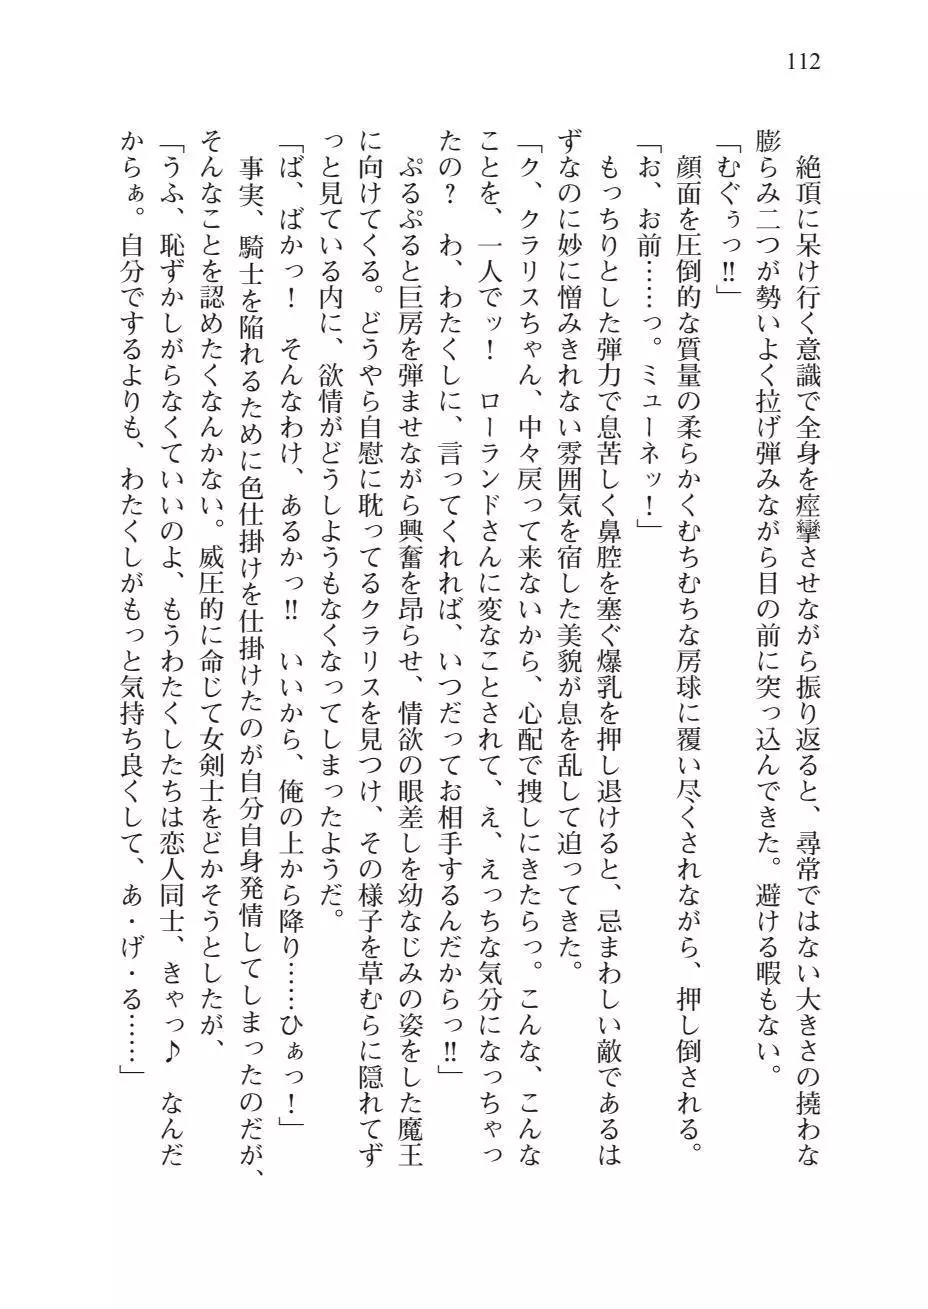 112
絶頂に呆け行く意識で全身を痙攣させながら振り返ると、尋常ではない大きさの撓わな
膨らみ二つが勢いよく拉げ弾みながら目の前に突っ込んできた。避ける暇もない。
「むぐぅっ‼」
顔面を圧倒的な質量の柔らかくむちむちな房球に覆い尽くされながら、押し倒される。
「お、お前……っ。ミューネッ！」
もっちりとした弾力で息苦しく鼻腔を塞ぐ爆乳を押し退けると、忌まわしい敵であるは
ずなのに妙に憎みきれない雰囲気を宿した美貌が息を乱して迫ってきた。
「ク、クラリスちゃん、中々戻って来ないから、心配で捜しにきたらっ。こんな、こんな
ことを、一人でッ！　ローランドさんに変なことされて、え、えっちな気分になっちゃっ
たの？　わ、わたくしに、言ってくれれば、いつだってお相手するんだからっ‼」
ぷるぷると巨房を弾ませながら興奮を昂らせ、情欲の眼差しを幼なじみの姿をした魔王
に向けてくる。どうやら自慰に耽ってるクラリスを見つけ、その様子を草むらに隠れてず
っと見ている内に、欲情がどうしようもなくなってしまったようだ。
「ば、ばかっ！　そんなわけ、あるかっ‼　いいから、俺の上から降り……ひぁっ！」
事実、騎士を陥れるために色仕掛けを仕掛けたのが自分自身発情してしまったのだが、
そんなことを認めたくなんかない。威圧的に命じて女剣士をどかそうとしたが、
「うふ、恥ずかしがらなくていいのよ、もうわたくしたちは恋人同士、きゃっ♪　なんだ
からぁ。自分でするよりも、わたくしがもっと気持ち良くして、あ・げ・る……」